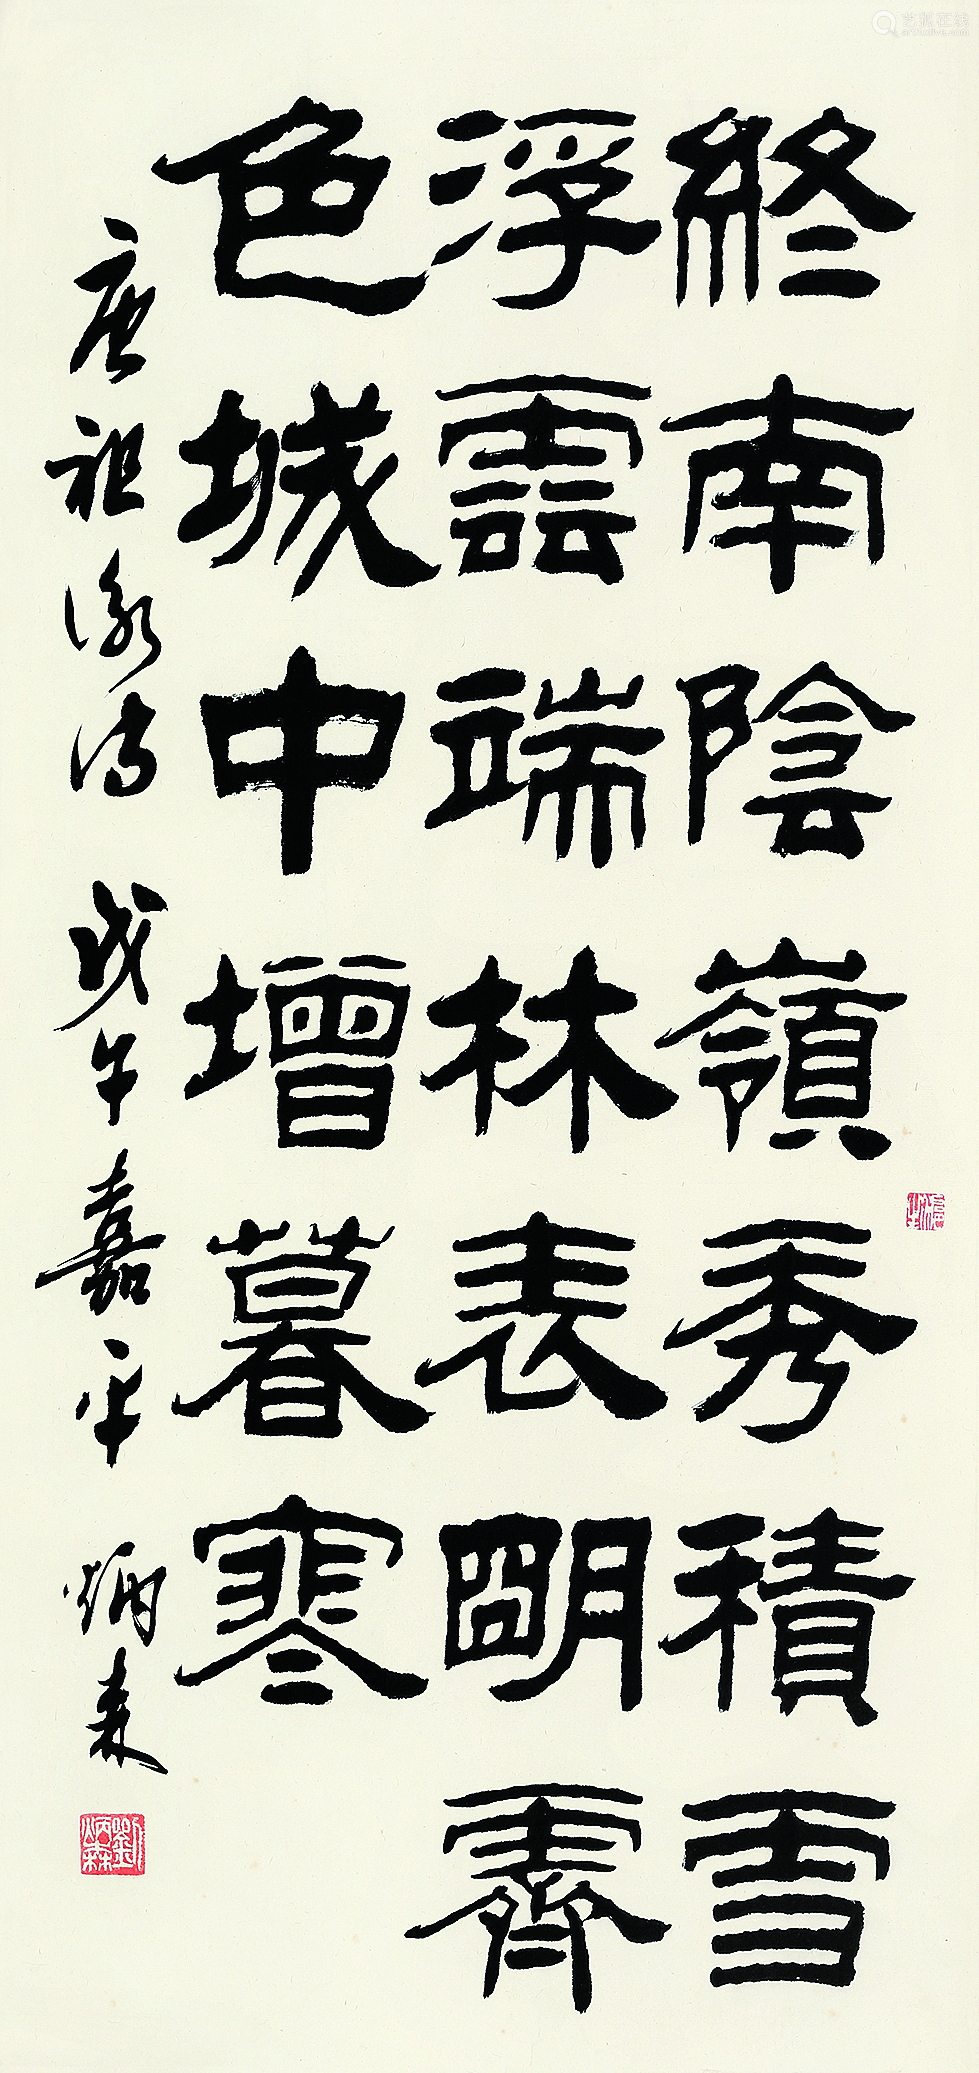 終南陰嶺秀積雪
浮雲端林表明霽
色城中增暮寒
唐祖詠詩 戊午嘉平 炳森
劉炳森